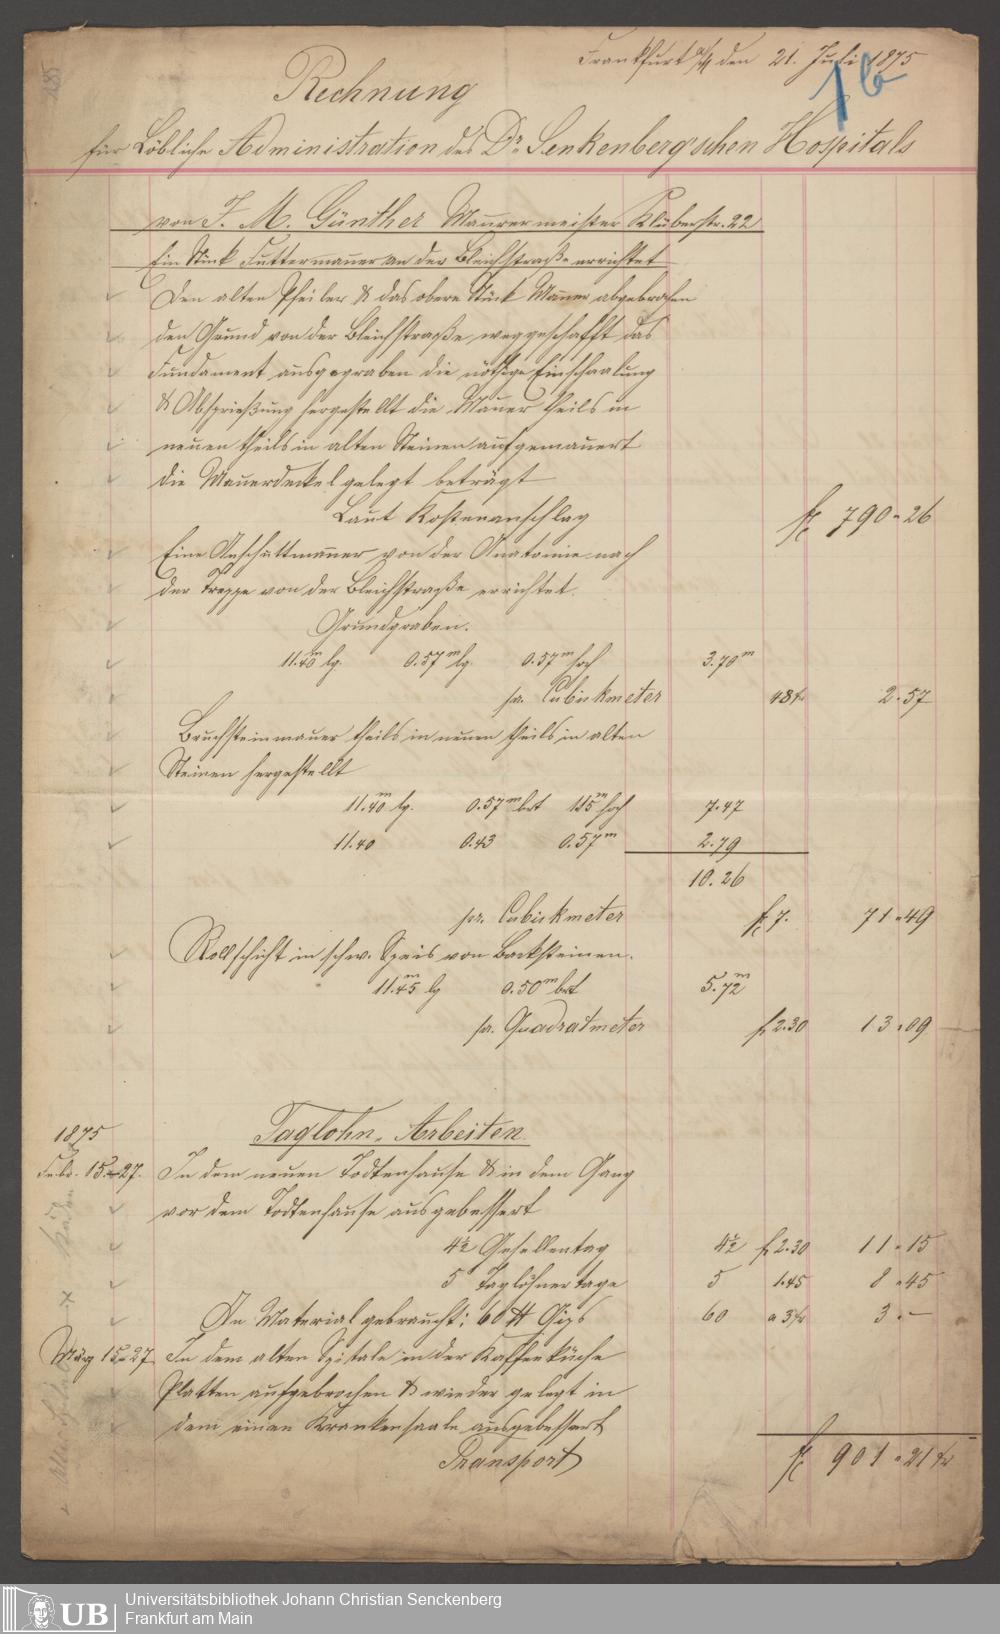 Frankfurt a/M den 21. Juli 1875
1b
Rechnung
für Löbliche Administration des Dr. Senkenberg'schen Hospitals
von J. M. Günther Maurermeister Klüberstr. 22
Ein Stück Futtermauer an der Bleichstraße errichtet
Den alten Pfeiler & das obere Stück Mauer abgebrochen
den Grund von der Bleichstraße weggeschafft das
Fundament ausgegraben die nöthige Einschaalung
& Absprießung hergestellt die Mauer theils in
neuen theils in alten Steinen aufgemauert
die Mauerdeckel gelegt beträgt
Laut Kostenanschlag f 790 " 26
Eine Anschuttmauer von der Anatomie nach
der Treppe von der Bleichstraße errichtet.
Grundgraben.
11.40 m lg. 0.57 m lg. 0.57 m hoch 3.70 m
pr. Cubickmeter 48 kr 2.57
Bruchsteinmauer theils in neuen theils in alten
Steinen hergestellt
11.40 m lg. 0.57 m brt 1.15 m hoch 7.47
11.40 0.43 0.57 m 2.79
10.26
pr. Cubickmeter f 7. 71 " 49
Rollschicht in schw. Speis von Backsteinen.
11.45 m lg 0.50 m brt 5.72 m
pr. Quadratmeter f 2.30 13 " 09
Taglohn-Arbeiten
1875
Febr. 15-27. In dem neuen Todtenhause & in dem Gang
vor dem Todtenhause ausgebessert
4½ Gesellentag 4½ f 2.30 11 " 15
5 Taglöhnertage 5 1.45 8 " 45
An Material gebraucht: 60 ℔ Gips 60 a 3 kr 3 " —
März 15-27 In dem alten Spitale in der Kaffenküche
Platten aufgebrochen & wieder gelegt in
dem einen Krankensaale ausgebessert
Transport f 901 " 21 kr
UB
Universitätsbibliothek Johann Christian Senckenberg
Frankfurt am Main